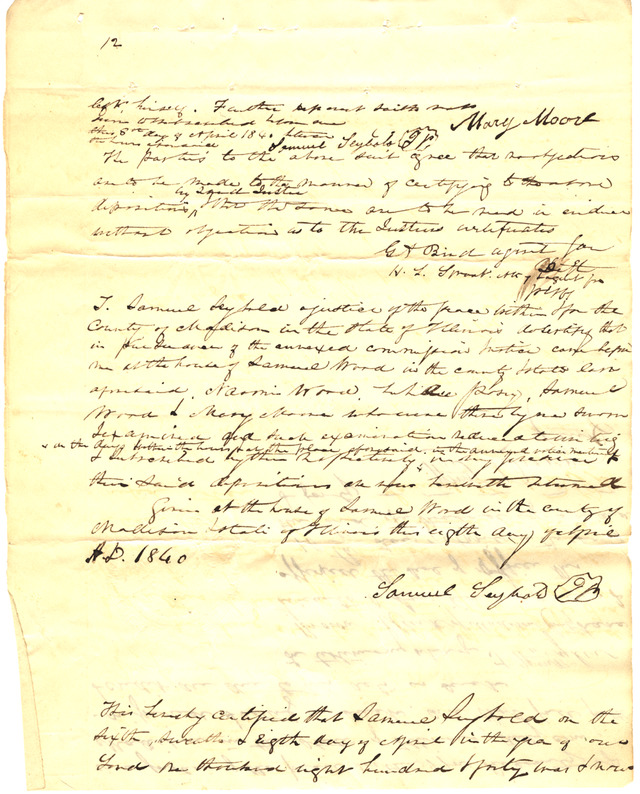 12
Further deponent saith not
Sworn to & subscribed before me Mary Moore
this 8th day of April 1840
Samuel Seybold JP
The parties to the above suit agree that no objections
are to be made to the manner of certifying to the above
by Squire Justice
depositions that the same are to be used in evidence
without objection as to the Justices certificates
G A Bird agent for
H. L. Sprout. Atty
I. Samuel Seybold a justice of the peace within & for the
County of Madison in the State of Illinois do certify that
in pursuance of the annexed commission & notice came before
me at the house of Samuel Wood in the county & state
aforesaid, Naomi Wood, Samuel
Wood & Mary Moore who were then by me sworn
& examined and such examination reduced to writing
on the day within the hours & at the place aforesaid in the annexed
& subscribed by them respectively in my presence
their said depositions are now herewith returned
Given at the house of Samuel Wood in the county of
Madison & State of Illinois this eighth day of April
A.D. 1840
Samuel Seybold JP
This hereby certified that Samuel Seybold on the
sixth, seventh & Eighth day of April in the year of our
Lord one thousand eight hundred & forty was & now